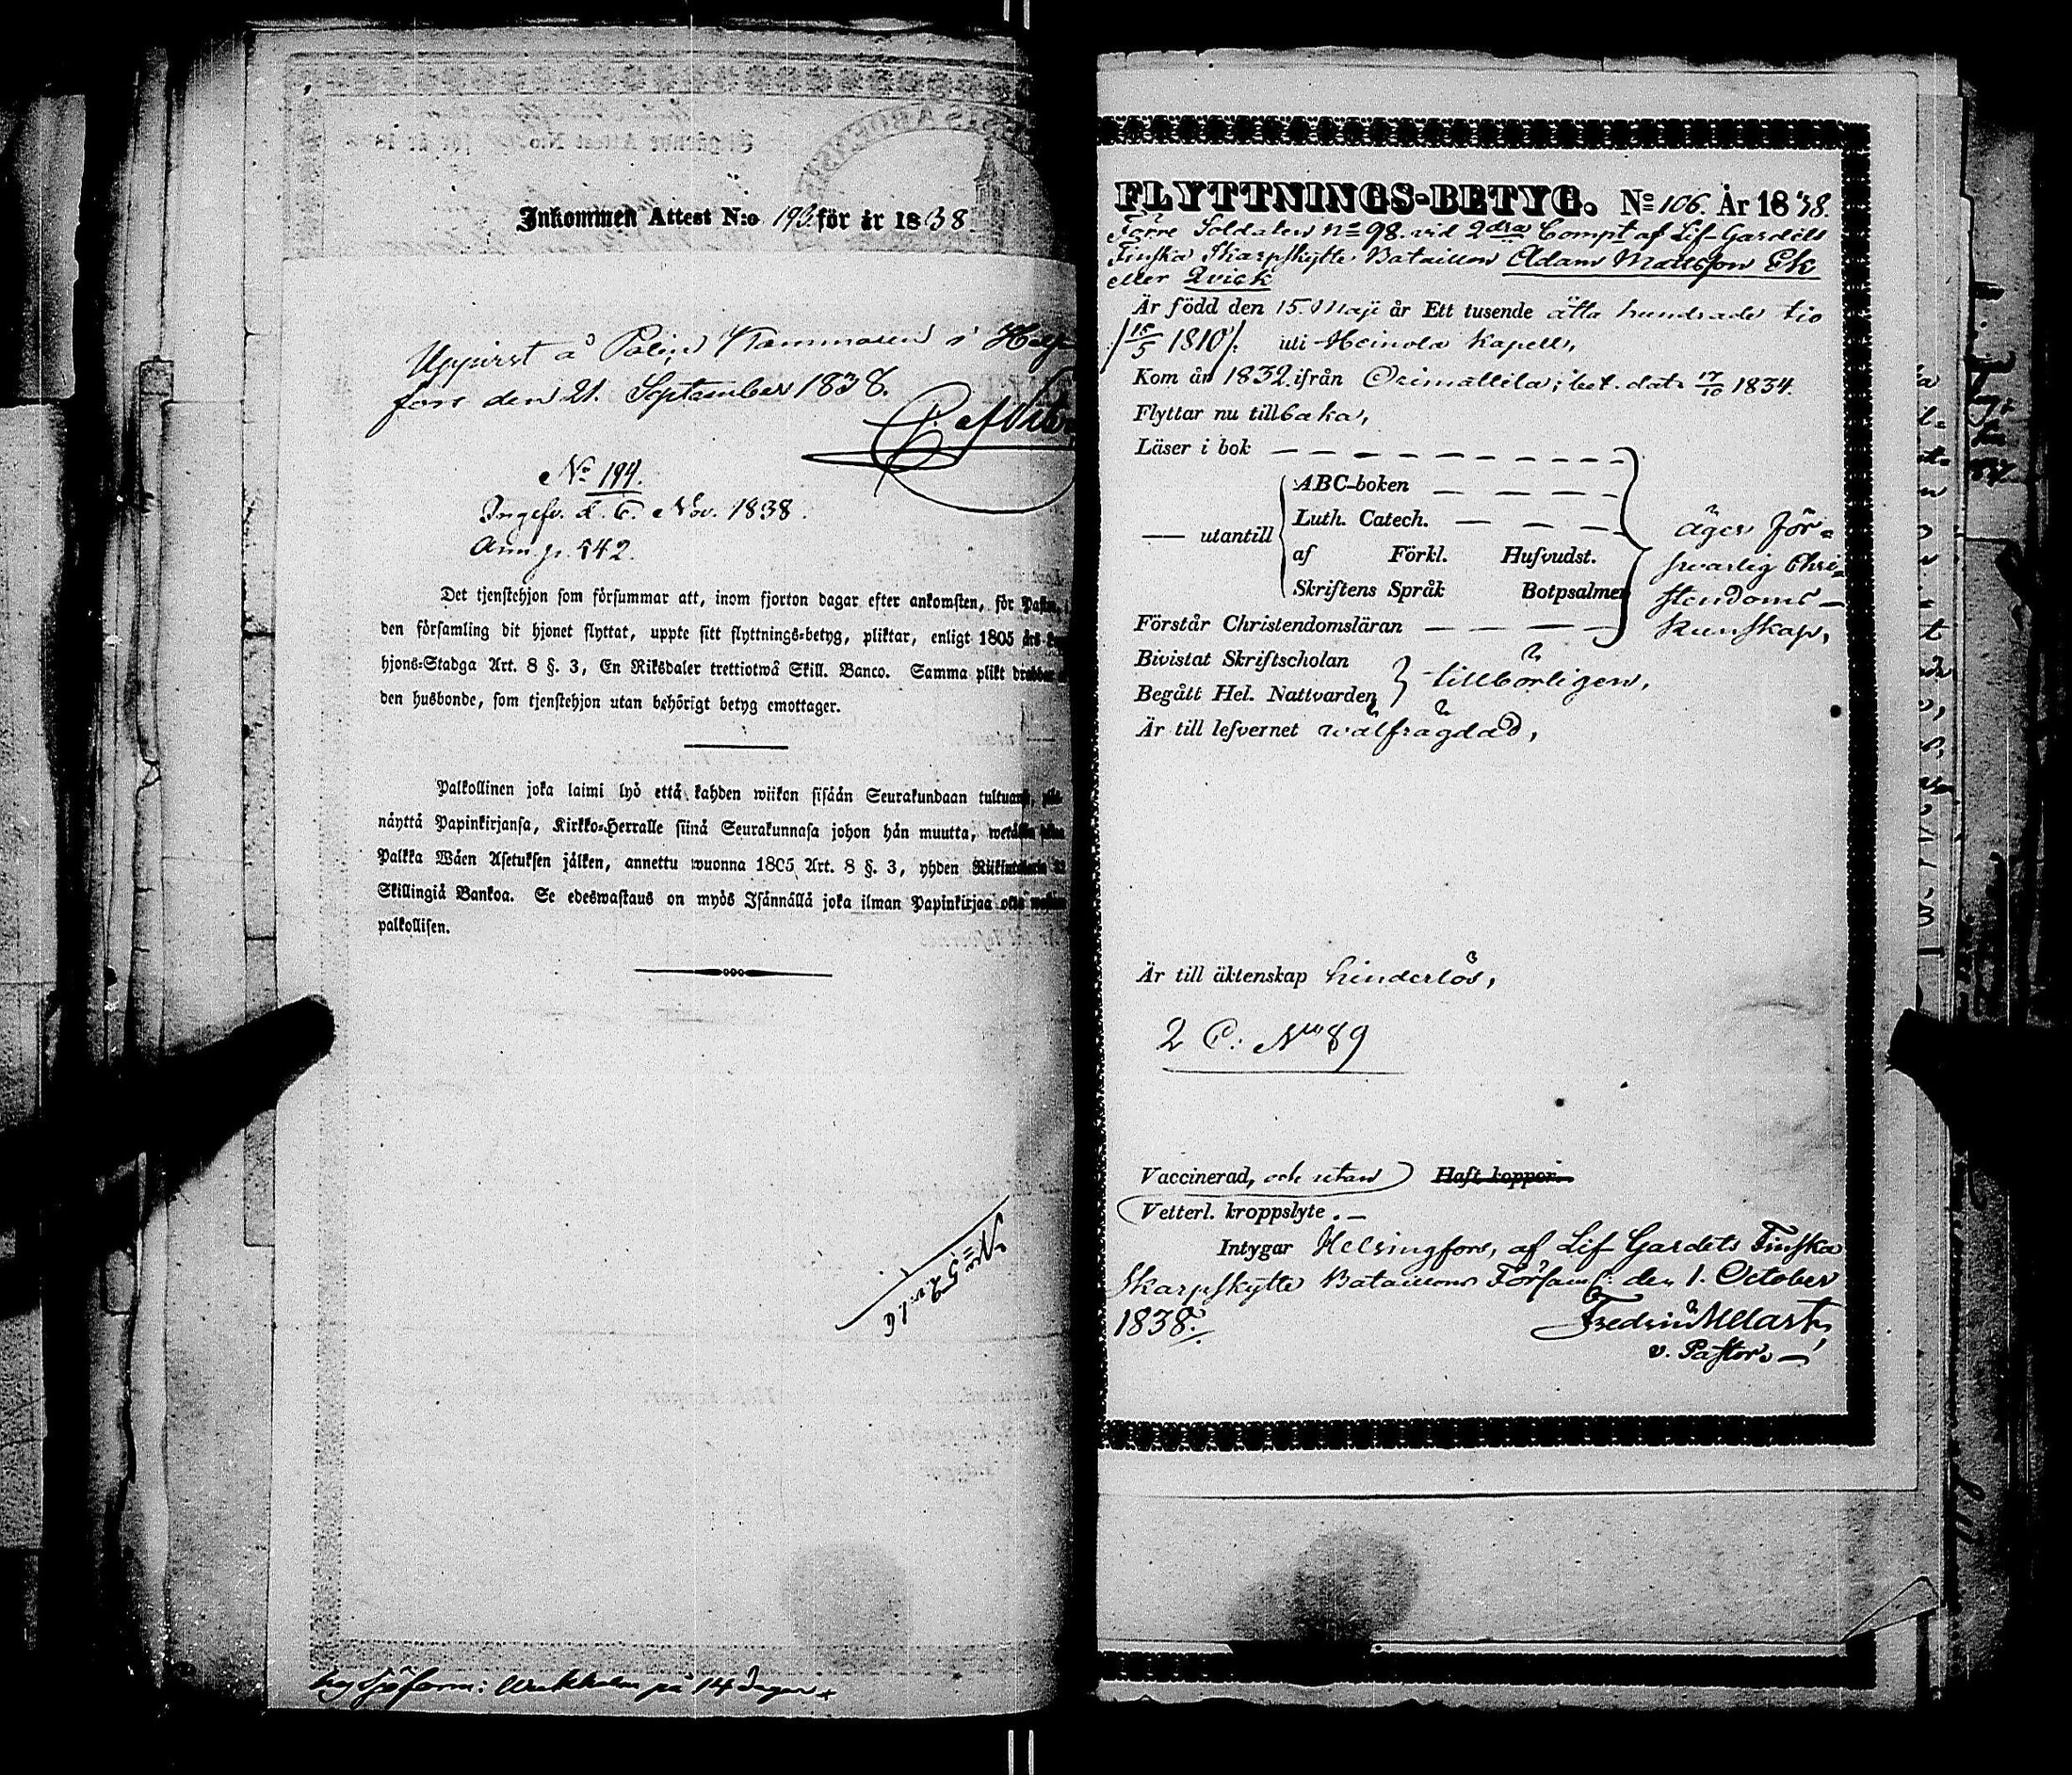 Inkommen Attest N:o 193 för år 1838.
Uppvist å Polise Kammaren i Helsing
fors den 21. September 1838.
No 194.
Ingefv. d. 6. Nov. 1838.
Ann. p. 542.
Det tjenstehjon som försummar att, inom fjorton dagar efter ankomsten, för Pastor
den församling dit hjonet flyttat, uppte sitt flyttnings-betyg, pliktar, enligt 1805 års
hjons-Stadga Art. 8 §. 3, En Riksdaler trettiotwå Skill. Banco. Samma plikt drabbar
den husbonde, som tjenstehjon utan behörigt betyg emottager.
Palkollinen joka laimi lyö että kahden wiikon sisään Seurakundaan tultuans,
näyttä Papinkirjansa, Kirkko-Herralle siinä Seurakunnasa johon hän muutta,
Palkka Wäen Asetuksen jälken, annettu wuonna 1805 Art. 8 §. 3, yhden
Skillingiä Bankoa. Se edeswastaus on myös Isännällä joka ilman Papinkirjaa
palkollisen.
på 14 dagar
FLYTTNINGS-BETYG. No 106 År 1838.
Förre Soldaten No 98. vid 2dra Compt af Lif-Gardets
Finska Skarpskytte Bataillon Adam Mattsson Ek
eller Qvick
Är född den 15. Maji år Ett tusende åtta hundrade tio
/15/5 1810/. uti Heinola Kapell,
Kom år 1832. ifrån Orimattila; bet. dat. 17/10 1834.
Flyttar nu tillbaka,
Läser i bok — — — — — — — — —
— utantill
ABC-boken — — — —
Luth. Catech. — — —
af Förkl. Husvudst.
Skriftens Språk Botpsalmer
Förstår Christendomsläran — — — —
äger för-
svarlig Chri-
stendoms-
kunskap,
Bivistat Skriftscholan
Begått Hel. Nattvarden
tillbörligen,
Är till lefvernet wälfrägdad,
Är till äktenskap hinderlös,
2 C. No 89
Vaccinerad, och utan Haft koppor.
Vetterl. kroppslyte. —
Intygar Helsingfors, af Lif Gardets Finska
Skarpskytte Bataillons Församl: den 1. October
1838.
v. Pastor. —